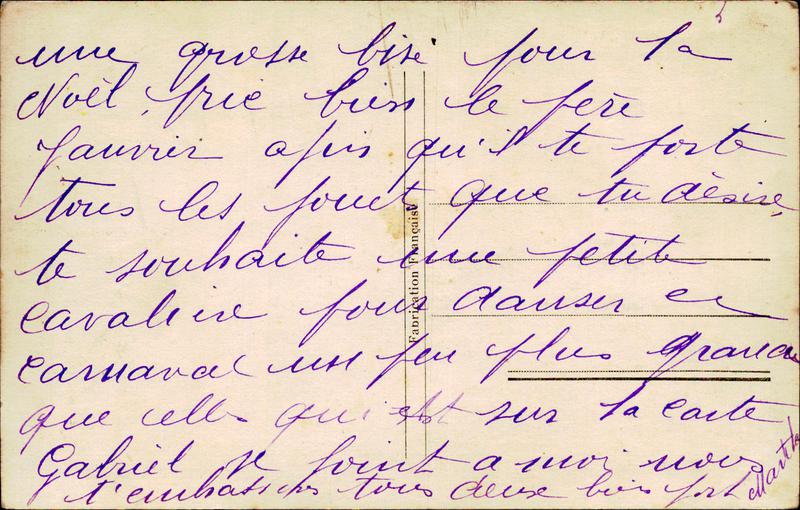 une grosse bise pour la
Noël, prie bien le père
Janvier afin qu'il te porte
tous les jouet que tu désire,
te souhaite une petite
cavalière pour danser ce
carnaval un peu plus grande
que celle qui est sur la carte
Gabriel se joint a moi nous
t'embassons tous deux bien fort
Marthe
Fabrication Française